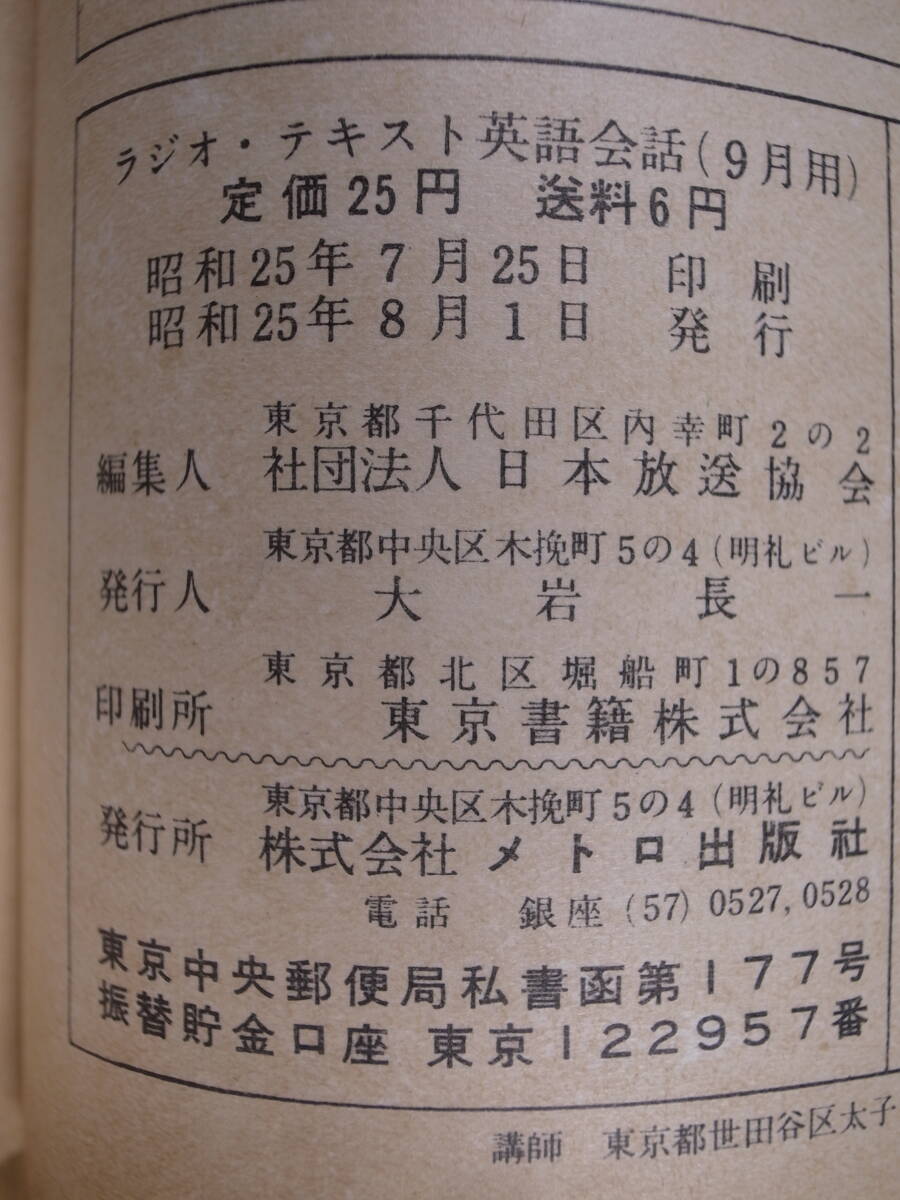 ラジオ・テキスト英語会話(9月用)
定価25円 送料6円
昭和25年7月25日 印刷
昭和25年8月1日 発行
東京都千代田区内幸町2の2
編集人 社団法人日本放送協会
東京都中央区木挽町5の4(明礼ビル)
発行人 大岩長一
東京都北区堀船町1の857
印刷所 東京書籍株式会社
東京都中央区木挽町5の4(明礼ビル)
発行所 株式会社メトロ出版社
電話 銀座(57)0527,0528
東京中央郵便局私書函第177号
振替貯金口座 東京122957番
講師 東京都世田谷区太子